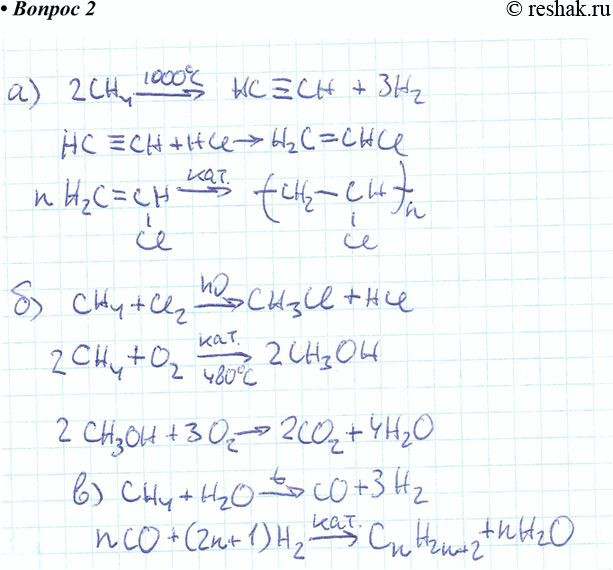 • Вопрос 2
© reshak.ru
а) 2CH₄ 1000°C → HC≡CH + 3H₂
HC≡CH + HCl → H₂C=CHCl
n H₂C=CH кат. → (CH₂–CH)ₙ
Cl Cl
б) CH₄ + Cl₂ hν → CH₃Cl + HCl
2CH₄ + O₂ кат. 480°C → 2CH₃OH
2CH₃OH + 3O₂ → 2CO₂ + 4H₂O
в) CH₄ + H₂O t → CO + 3H₂
nCO + (2n+1)H₂ кат. → CₙH₂ₙ₊₂ + nH₂O